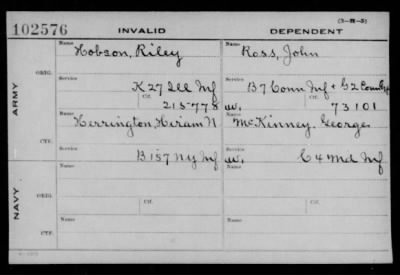 102576 INVALID DEPENDENT (3-H-3)
Name Hobson, Riley Name Ross, John
ARMY
ORIG. Service K 27 Ill Inf Service B 7 Conn Inf + G 2
Ctf. 215778 Ctf. 73101
Name Herrington, Hiram N Name McKinney George
CTF. Service B 157 Ny Inf Service C 4 Md Inf
NAVY
Name Name
ORIG. Ctf. Ctf.
Name Name
CTF.